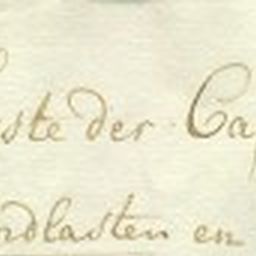 ste der Ca
ndlasten en